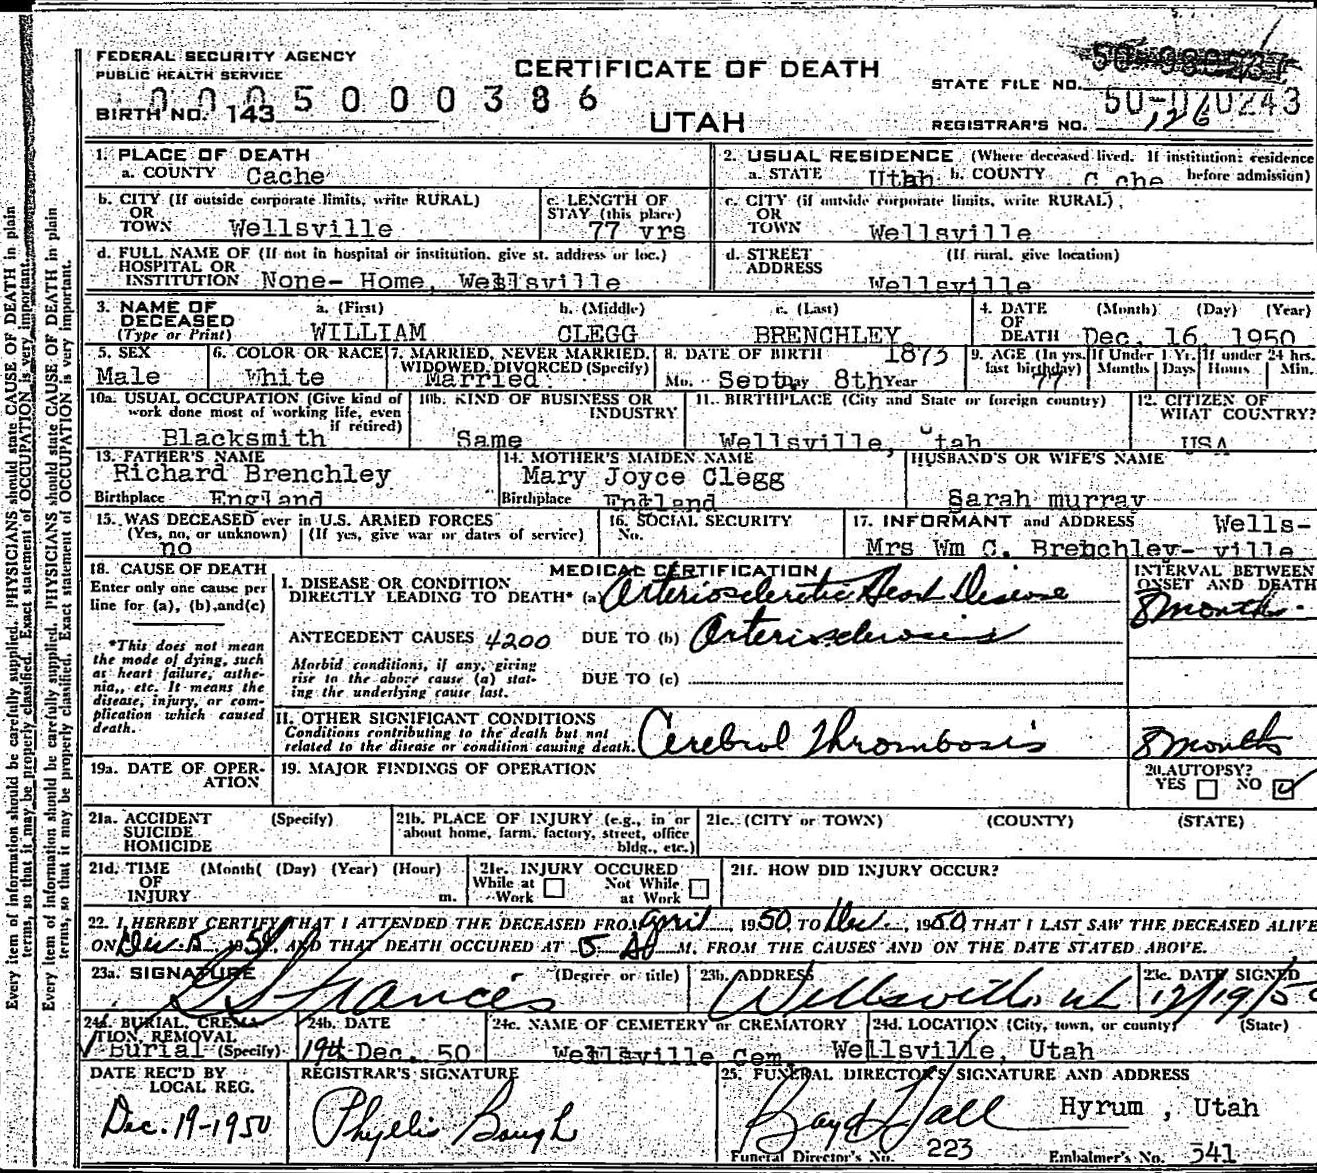 FEDERAL SECURITY AGENCY
PUBLIC HEALTH SERVICE
CERTIFICATE OF DEATH
UTAH
STATE FILE NO.
50-020243
0005000386
BIRTH NO. 143
REGISTRAR'S NO. 126
1. PLACE OF DEATH
a. COUNTY Cache
2. USUAL RESIDENCE (Where deceased lived. If institution: residence before admission)
a. STATE Utah b. COUNTY C che
b. CITY (If outside corporate limits, write RURAL)
OR
TOWN Wellsville
c. LENGTH OF
STAY (this place)
77 yrs
c. CITY (if outside corporate limits, write RURAL)
OR
TOWN Wellsville
d. FULL NAME OF (If not in hospital or institution, give st. address or loc.)
HOSPITAL OR
INSTITUTION None- Home, Wellsville
d. STREET (If rural, give location)
ADDRESS Wellsville
3. NAME OF
DECEASED
(Type or Print)
a. (First) b. (Middle) c. (Last)
WILLIAM CLEGG BRENCHLEY
4. DATE (Month) (Day) (Year)
OF
DEATH Dec. 16, 1950
5. SEX
Male
6. COLOR OR RACE
White
7. MARRIED, NEVER MARRIED,
WIDOWED, DIVORCED (Specify)
Married
8. DATE OF BIRTH 1873
Mo. Sept Day 8th Year
9. AGE (In yrs.
last birthday)
77
If Under 1 Yr.
Months Days
If under 24 hrs.
Hours Min.
10a. USUAL OCCUPATION (Give kind of
work done most of working life, even
if retired)
Blacksmith
10b. KIND OF BUSINESS OR
INDUSTRY
Same
11. BIRTHPLACE (City and State or foreign country)
Wellsville, Utah
12. CITIZEN OF
WHAT COUNTRY?
USA
13. FATHER'S NAME
Richard Brenchley
Birthplace England
14. MOTHER'S MAIDEN NAME
Mary Joyce Clegg
Birthplace England
HUSBAND'S OR WIFE'S NAME
Sarah murray
15. WAS DECEASED ever in U.S. ARMED FORCES
(Yes, no, or unknown) (If yes, give war or dates of service)
no
16. SOCIAL SECURITY
No.
17. INFORMANT and ADDRESS Wells-
Mrs Wm C. Brenchley- ville
18. CAUSE OF DEATH
Enter only one cause per
line for (a), (b), and (c)
*This does not mean
the mode of dying, such
as heart failure, asthe-
nia, etc. It means the
disease, injury, or com-
plication which caused
death.
MEDICAL CERTIFICATION
I. DISEASE OR CONDITION
DIRECTLY LEADING TO DEATH* (a) Arteriosclerotic Heart Disease
ANTECEDENT CAUSES 4200 DUE TO (b) Arteriosclerosis
Morbid conditions, if any, giving
rise to the above cause (a) stat-
ing the underlying cause last.
DUE TO (c)
INTERVAL BETWEEN
ONSET AND DEATH
8 months
II. OTHER SIGNIFICANT CONDITIONS
Conditions contributing to the death but not
related to the disease or condition causing death.
Cerebrol Thrombosis
8 months
19a. DATE OF OPER-
ATION
19. MAJOR FINDINGS OF OPERATION
20. AUTOPSY?
YES NO
21a. ACCIDENT (Specify)
SUICIDE
HOMICIDE
21b. PLACE OF INJURY (e.g., in or
about home, farm, factory, street, office
bldg., etc.)
21c. (CITY or TOWN) (COUNTY) (STATE)
21d. TIME (Month( (Day) (Year) (Hour)
OF
INJURY m.
21e. INJURY OCCURED
While at Work Not While at Work
21f. HOW DID INJURY OCCUR?
22. I HEREBY CERTIFY THAT I ATTENDED THE DECEASED FROM April, 1950, TO Dec, 1950, THAT I LAST SAW THE DECEASED ALIVE
ON Dec. 15 1950, AND THAT DEATH OCCURED AT 5 A M. FROM THE CAUSES AND ON THE DATE STATED ABOVE.
23a. SIGNATURE (Degree or title)
Francis
23b. ADDRESS
Wellsville, ut
23c. DATE SIGNED
12/19/50
24a. BURIAL, CREMA
TION, REMOVAL
Burial (Specify)
24b. DATE
19th Dec. 50
24c. NAME OF CEMETERY or CREMATORY
Wellsville Cem.
24d. LOCATION (City, town, or county) (State)
Wellsville, Utah
DATE REC'D BY
LOCAL REG.
Dec. 19-1950
REGISTRAR'S SIGNATURE
Phyllis Baugh
25. FUNERAL DIRECTOR'S SIGNATURE AND ADDRESS
Boyd Hall Hyrum, Utah
Funeral Director's No. 223 Embalmer's No. 341
Every item of information should be carefully supplied. PHYSICIANS should state CAUSE OF DEATH in plain
terms, so that it may be properly classified. Exact statement of OCCUPATION is very important.
Every item of information should be carefully supplied. PHYSICIANS should state CAUSE OF DEATH in plain
terms, so that it may be properly classified. Exact statement of OCCUPATION is very important.